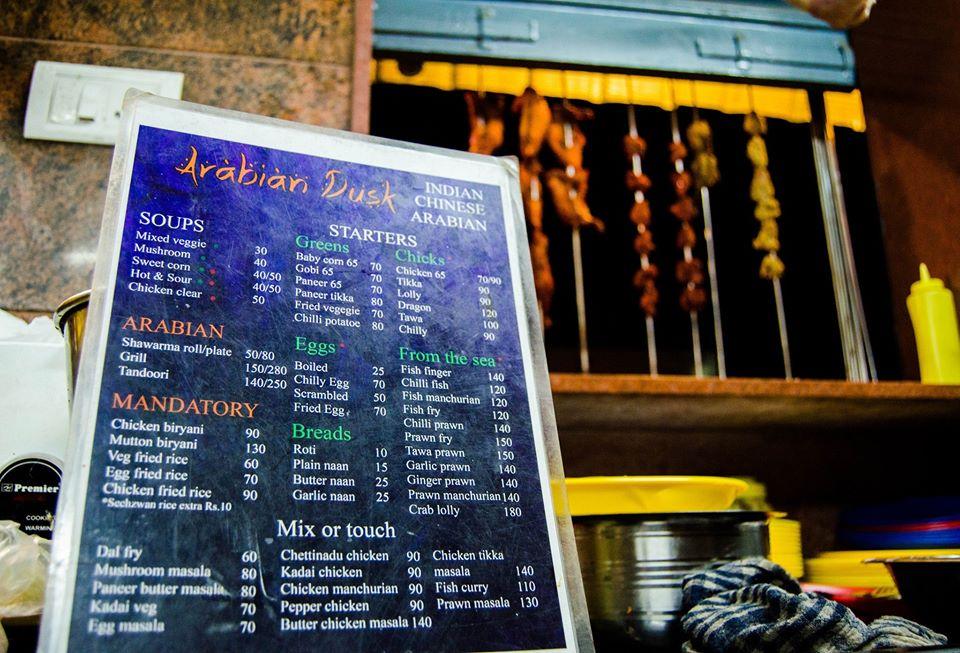 Arabian Dusk
INDIAN
CHINESE
ARABIAN
SOUPS
Mixed veggie 30
Mushroom 40
Sweet corn 40/50
Hot & Sour 40/50
Chicken clear 50
ARABIAN
Shawarma roll/plate 50/80
Grill 150/280
Tandoori 140/250
MANDATORY
Chicken biryani 90
Mutton biryani 130
Veg fried rice 60
Egg fried rice 70
Chicken fried rice 90
*Sechzwan rice extra Rs.10
STARTERS
Greens
Baby corn 65 70
Gobi 65 70
Paneer 65 70
Paneer tikka 80
Fried vegegie 70
Chilli potatoe 80
Eggs
Boiled 25
Chilly Egg 70
Scrambled 50
Fried Egg 70
Breads
Roti 10
Plain naan 15
Butter naan 25
Garlic naan 25
Chicks
Chicken 65 70/90
Tikka 90
Lolly 90
Dragon 120
Tawa 100
Chilly 90
From the sea
Fish finger 140
Chilli fish 120
Fish manchurian 120
Fish fry 120
Chilli prawn 140
Prawn fry 150
Tawa prawn 150
Garlic prawn 140
Ginger prawn 140
Prawn manchurian 140
Crab lolly 180
Mix or touch
Dal fry 60
Mushroom masala 80
Paneer butter masala 80
Kadai veg 70
Egg masala 70
Chettinadu chicken 90
Kadai chicken 90
Chicken manchurian 90
Pepper chicken 90
Butter chicken masala 140
Chicken tikka
masala 140
Fish curry 110
Prawn masala 130
Premier
COOKIE
WARMIN